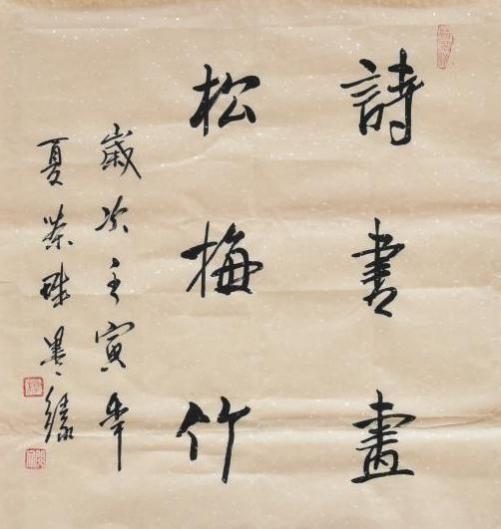 詩書畫
松梅竹
歲次壬寅年
夏荣珠墨緣